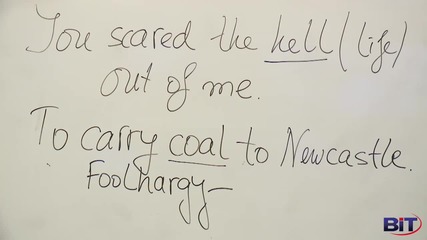 You scared the hell (life)
out of me.
To carry coal to Newcastle.
Foolhargy-
BiT